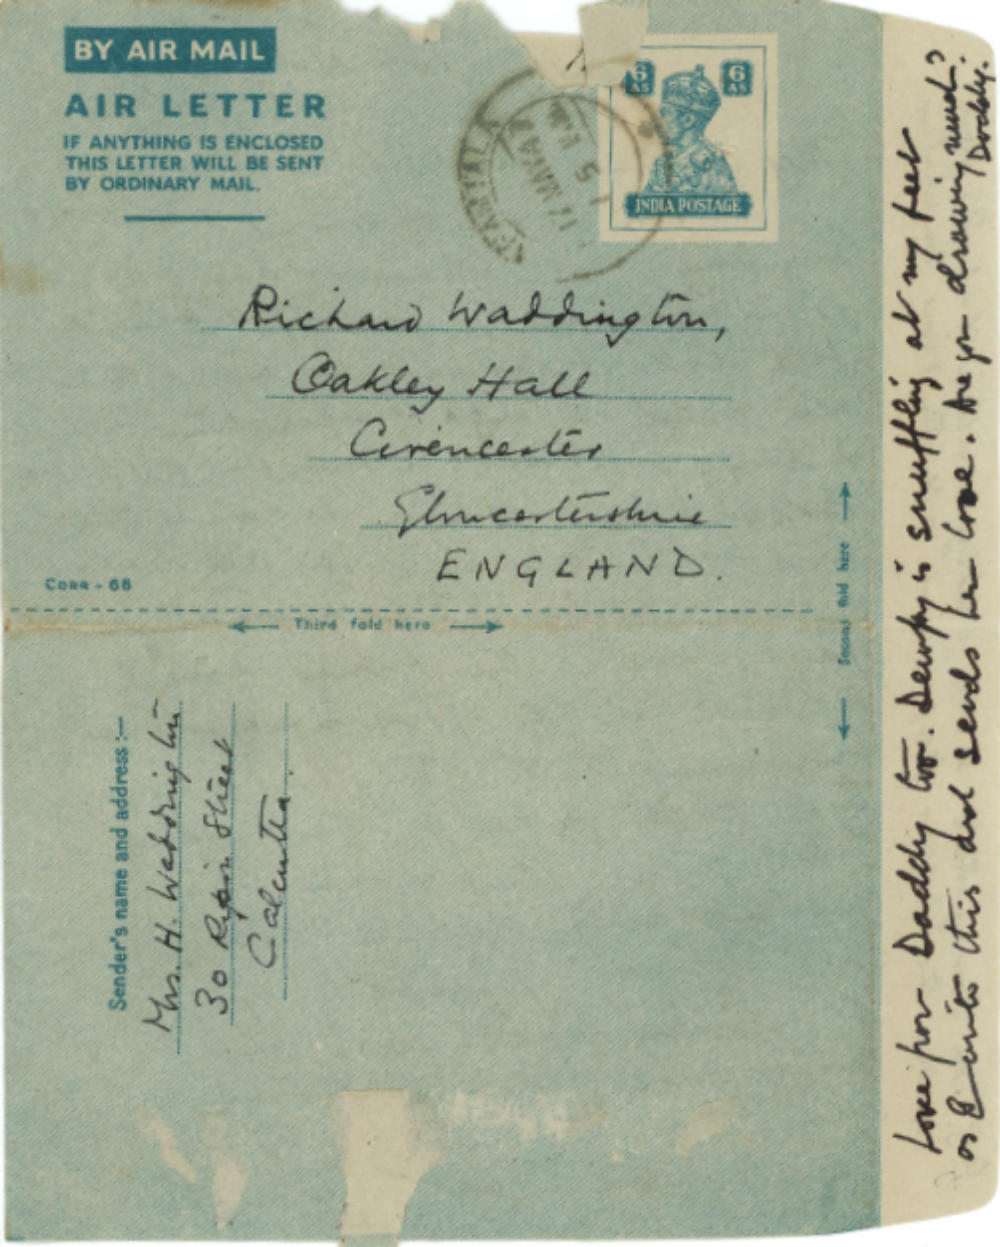 BY AIR MAIL
AIR LETTER
IF ANYTHING IS ENCLOSED
THIS LETTER WILL BE SENT
BY ORDINARY MAIL.
6 AS
6 AS
INDIA POSTAGE
Richard Waddington,
Oakley Hall
Cirencester
Gloucestershire
ENGLAND.
CORR - 68
Third fold here
Second fold here
Sender's name and address :—
Mrs. H. Waddington
30 Ripon Street
Calcutta.
Love from Daddy too. is snuffling at my feet
as I write this and sends her love. Are you drawing much?
Daddy.